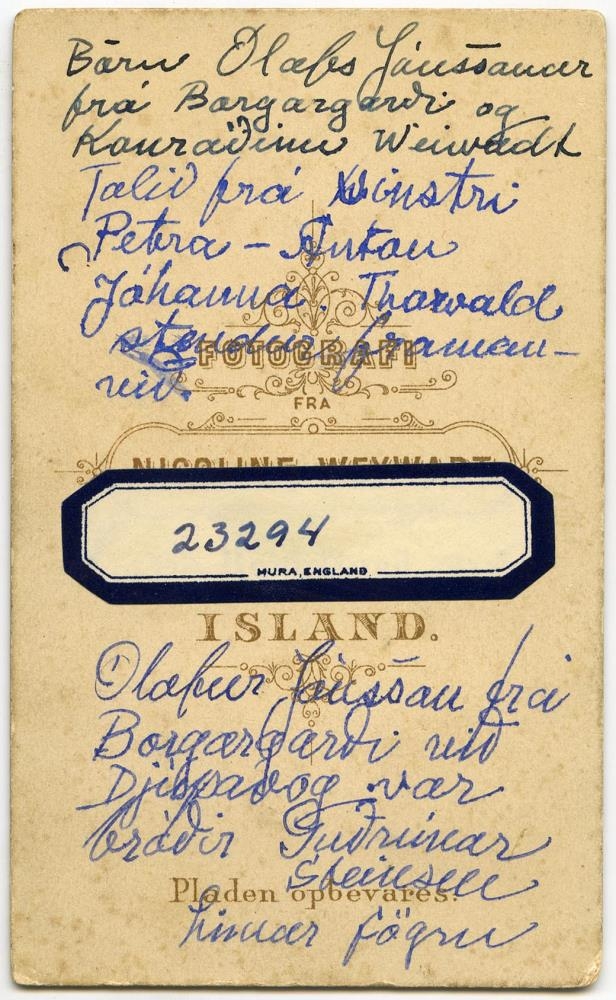 Börn Ólafs Jónssonar
frá Borgargarði og
Konradínu Weiwadt
Talið frá vinstri
Petra - Anton
Jóhanna. Thorvald
stendur framan-
við.
FOTOGRAFI
FRA
NICOLINE WEYWADT
23294
MURA, ENGLAND
ISLAND.
Ólafur Jónsson frá
Borgargarði við
Djúpavog var
bróðir Guðrúnar
Steinsen
Pladen opbevares.
hinnar fögru